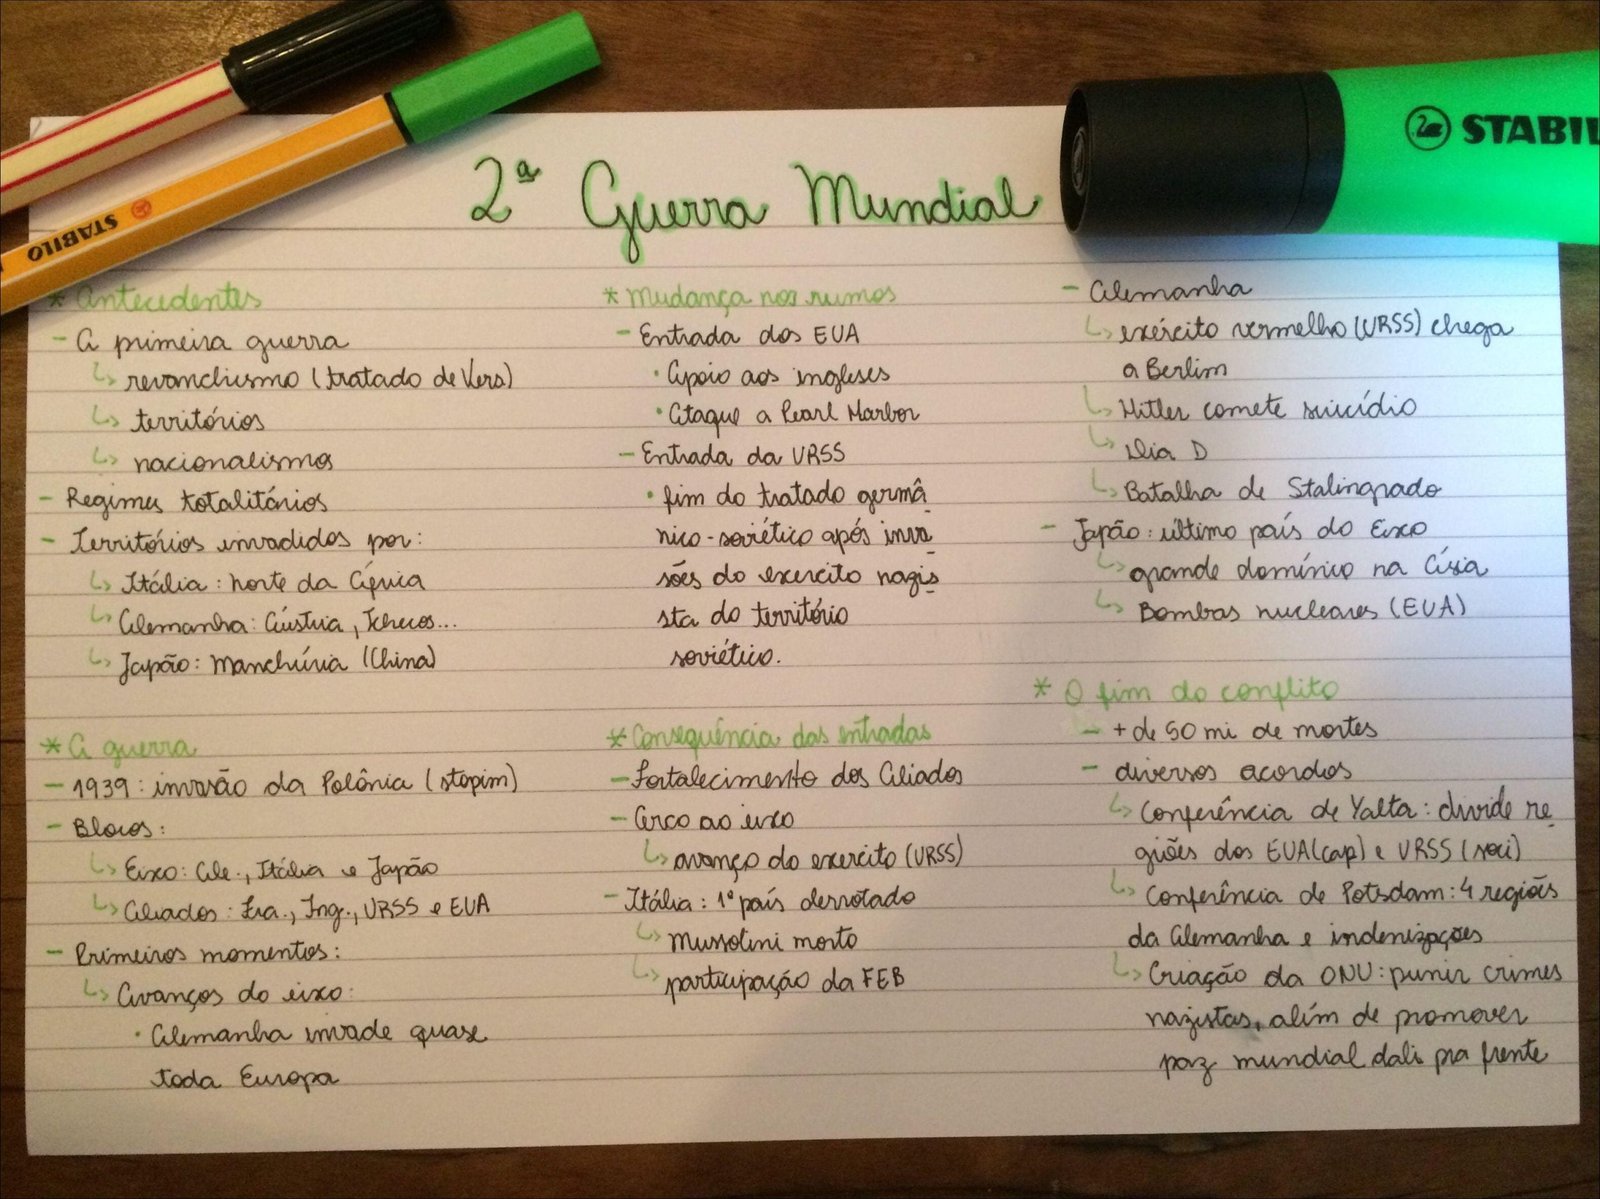 STABILO
STABIL
2ª Guerra Mundial
* Antecedentes
- A primeira guerra
↳ revanchismo (tratado de Vers)
↳ territórios
↳ nacionalismos
- Regimes totalitários
- Territórios invadidos por:
↳ Itália: norte da África
↳ Alemanha: Áustria, Tchecos...
↳ Japão: Manchúria (China)
* A guerra
- 1939: invasão da Polônia (stopim)
- Blocos:
↳ Eixo: Ale., Itália e Japão
↳ Aliados: Fra., Ing., URSS e EUA
- Primeiros momentos:
↳ Avanços do eixo:
• Alemanha invade quase
toda Europa
* Mudança nos rumos
- Entrada dos EUA
• Apoio aos ingleses
• Ataque a Pearl Harbor
- Entrada da URSS
• fim do tratado germâ
nico-soviético após inva
sões do exercito nazis
sta do território
soviético.
* Consequência das entradas
- Fortalecimento dos Aliados
- Cerco ao eixo
↳ avanço do exercito (URSS)
- Itália: 1º país derrotado
↳ Mussolini morto
↳ participação da FEB
- Alemanha
↳ exército vermelho (URSS) chega
a Berlim
↳ Hitler comete suicídio
↳ Dia D
↳ Batalha de Stalingrado
- Japão: último país do Eixo
↳ grande domínio na Ásia
↳ Bombas nucleares (EUA)
* O fim do conflito
- + de 50 mi de mortes
- diversos acordos
↳ Conferência de Yalta: divide re
giões dos EUA(cap) e URSS (soci)
↳ Conferência de Potsdam: 4 regiões
da Alemanha e indenizações
↳ Criação da ONU: punir crimes
nazistas, além de promover
paz mundial dali pra frente